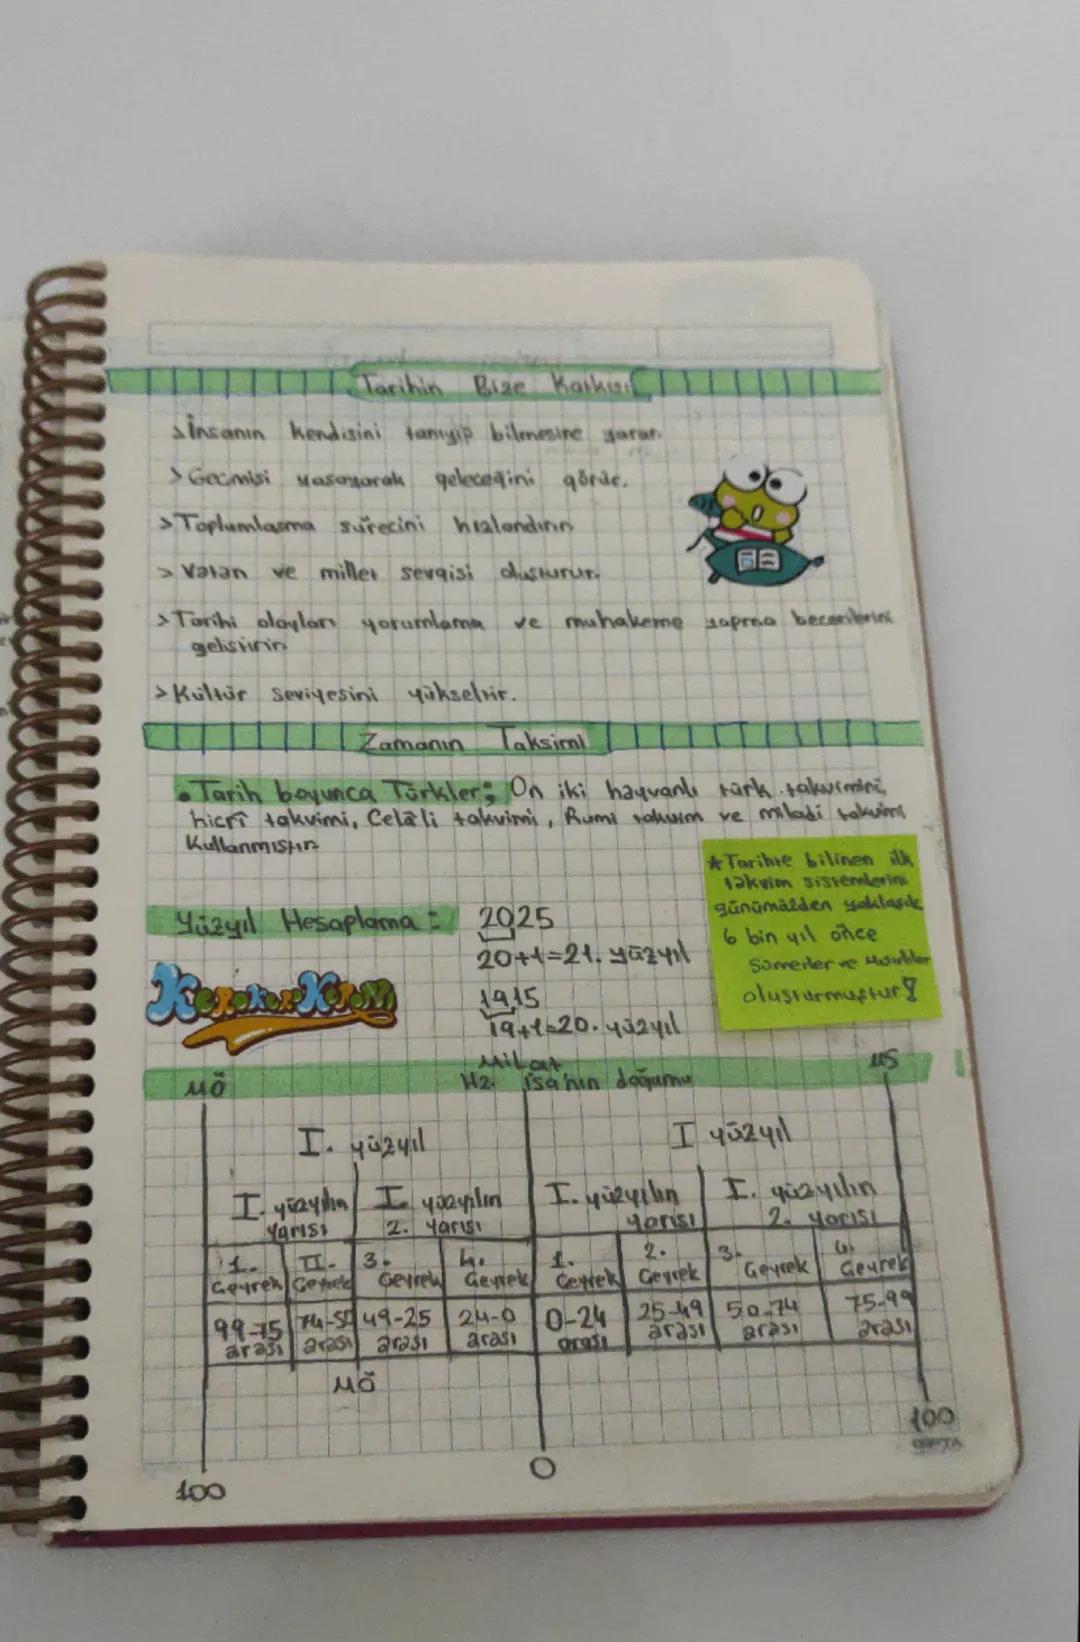 Tarihin Bize Katkısı
>İnsanın kendisini tanıyıp bilmesine yarar.
>Gecmisi yasayarak geleceğini görür.
>Toplumlasma sürecini hızlandırır.
>Vatan ve millet sevgisi oluşturur.
>Tarihi olayları yorumlama ve muhakeme yapma becerilerini
gelistirir.
>Kültür seviyesini yükseltir.
Zamanın Taksimi
• Tarih boyunca Türkler; On iki hayvanlı türk takvimini,
hicrî takvimi, Celâli takvimi, Rumi takvim ve miladi takvimi
Kullanmıştır.
★Tarihte bilinen ilk
takvim sistemlerini
günümüzden yaklaşık
6 bin yıl önce
Sümerler ve Mısırlılar
oluşturmuştur!
Yüzyıl Hesaplama: 2025
20+1=21. yüzyıl
KeroKeroKeroppi
1915
19+1=20. yüzyıl
MÖ Milat MS
Hz. İsa'nın doğumu
I. yüzyıl I yüzyıl
I. yüzyılın I. yüzyılın I. yüzyılın I. yüzyılın
yarısı 2. yarısı yarısı 2. yarısı
1. II. 3. 4. 1. 2. 3. 4.
Çeyrek Çeyrek Çeyrek Çeyrek Çeyrek Çeyrek Çeyrek Çeyrek
99-75 74-50 49-25 24-0 0-24 25-49 50-74 75-99
arası arası arası arası arası arası arası arası
MÖ
100 0 100